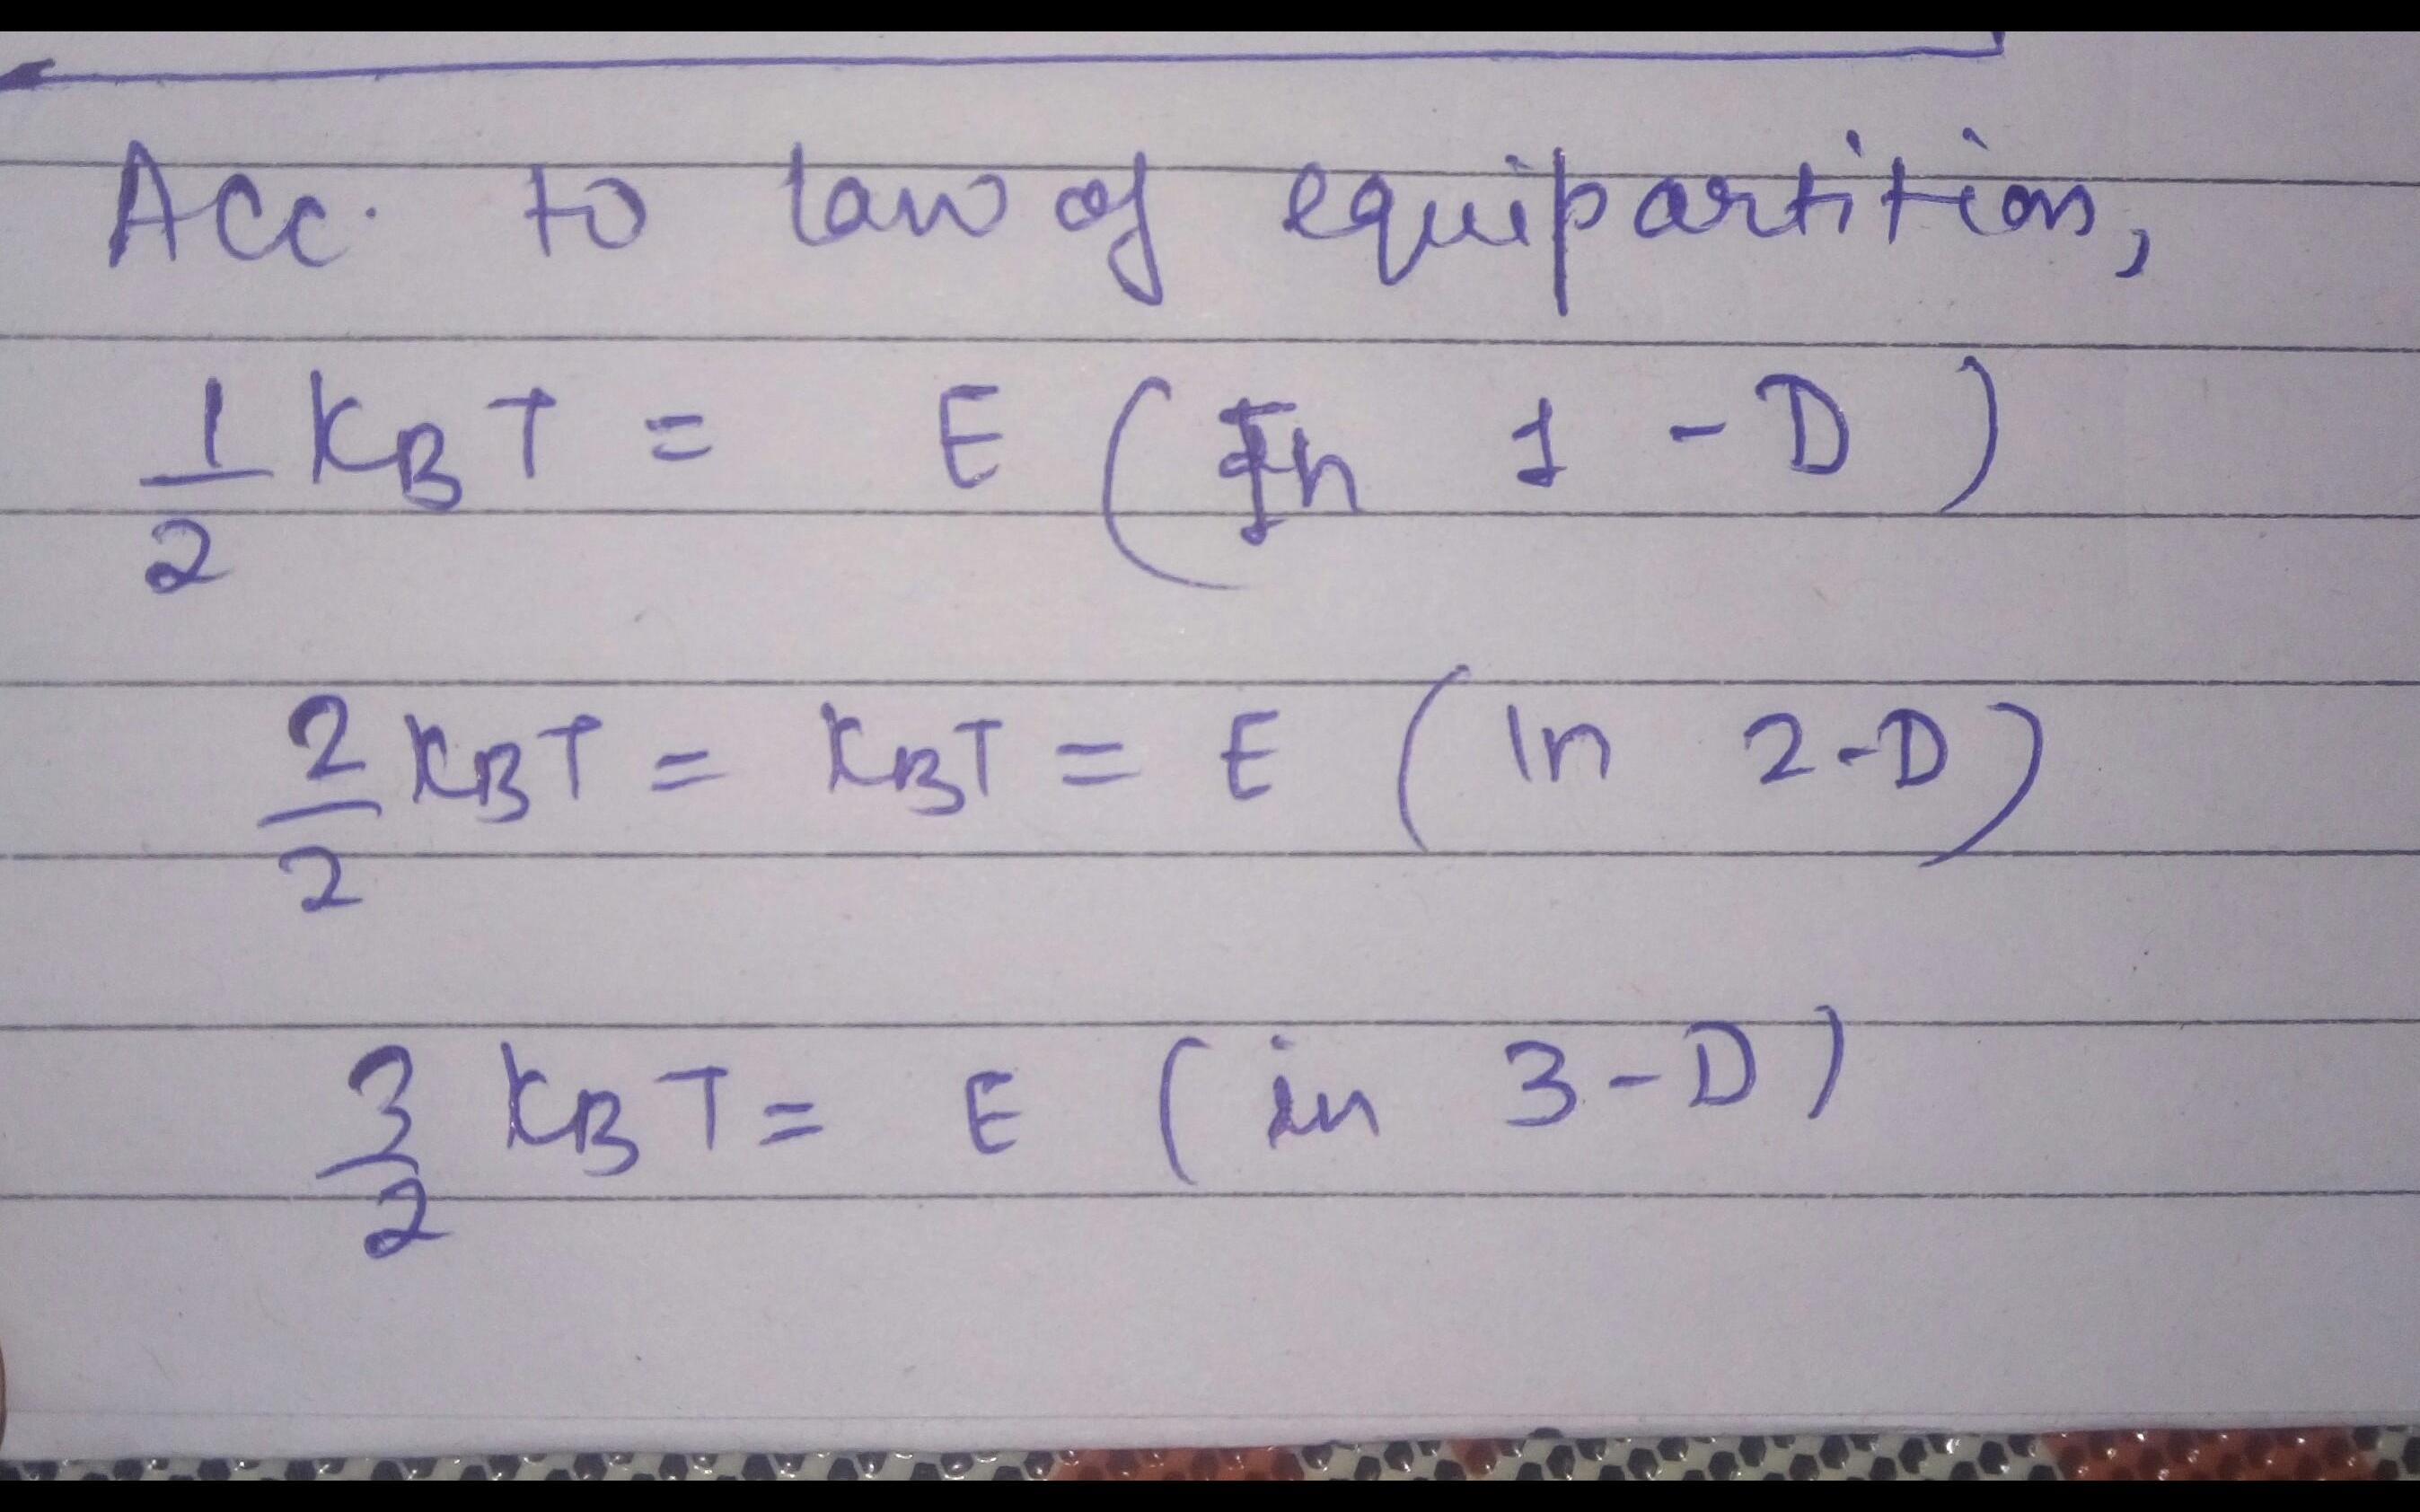 Acc. to law of equipartition,
1/2 KBT = E (In 1-D)
2/2 KBT = KBT = E (In 2-D)
3/2 KBT = E (in 3-D)